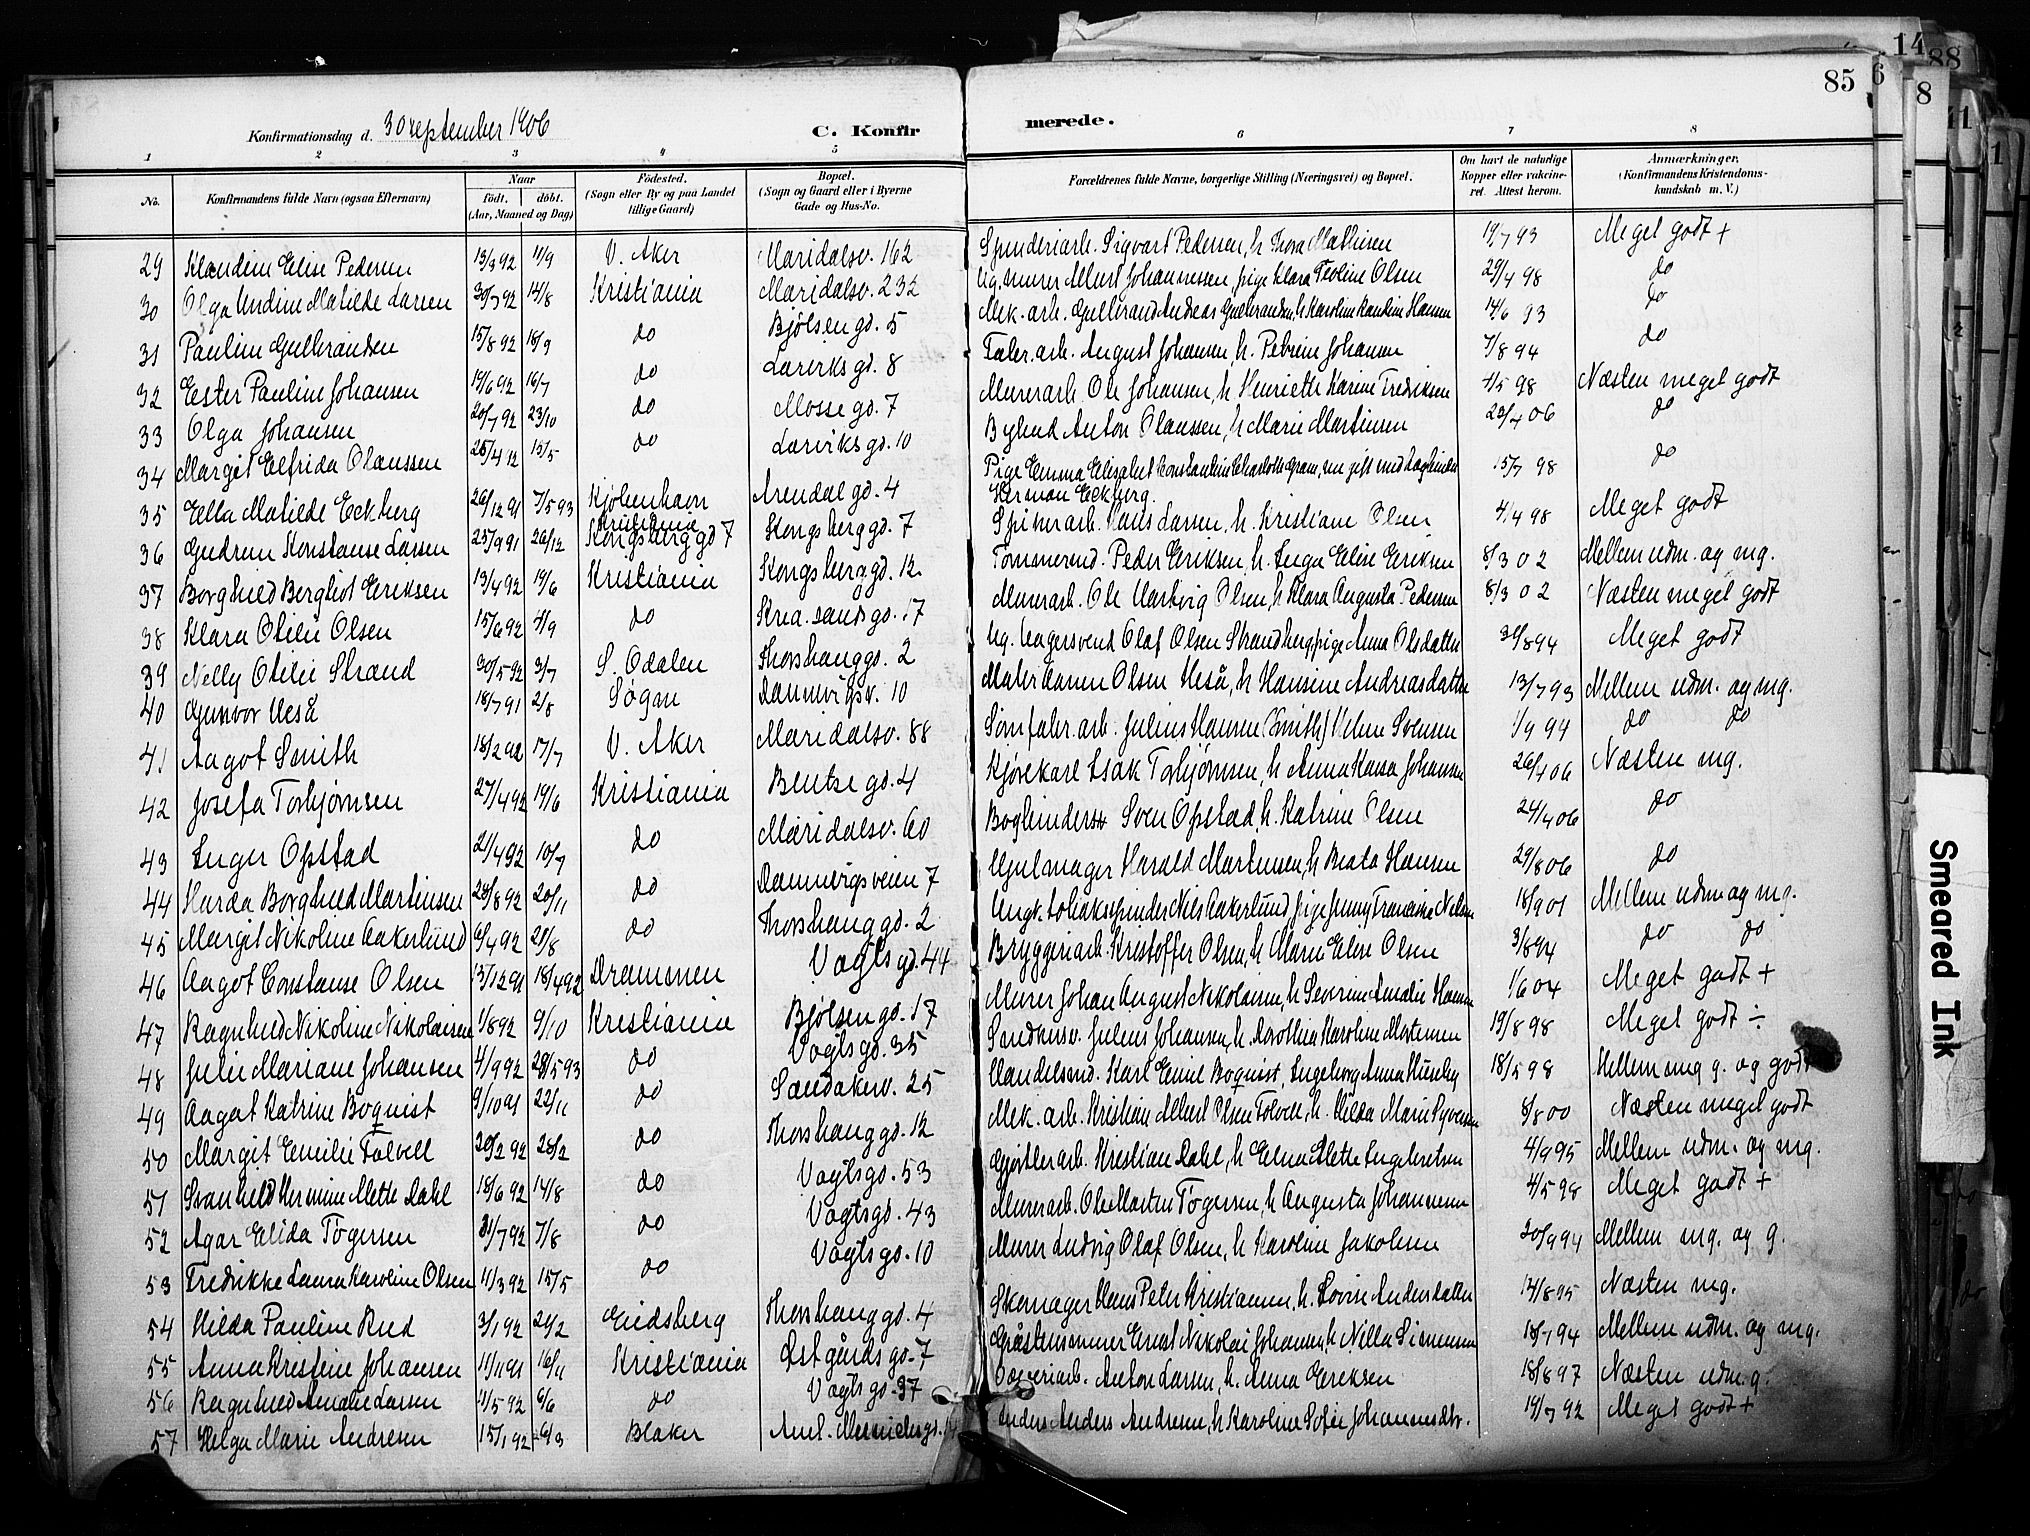 85
14
88
6
8
Konfirmationsdag d. 30 september 1906
C. Konfir merede.
1 2 3 4 5 6 7 8
No.
Konfirmandens fulde Navn (ogsaa Efternavn)
Naar
født. døbt.
(Aar, Maaned og Dag)
Fødested.
(Sogn eller By og paa Landet tillige Gaard)
Bopæl.
(Sogn og Gaard eller i Byerne Gade og Hus-No.
Forældrenes fulde Navne, borgerlige Stilling (Næringsvei) og Bopæl.
Om havt de naturlige Kopper eller vaccineret. Attest herom.
Anmærkninger.
(Konfirmandens Kristendomskundskab m. V.)
29 Klaudine Elise Pedersen 13/3 92 11/9 V. Aker Maridalsv. 162 Spinderiarb. Sigvart Pedersen, h. Thora Mathisen 19/7 93 Meget godt +
30 Olga Undine Matilde Larsen 30/7 92 14/8 Kristiania Maridalsv. 232 Ug. murer Albert Johannessen, pige Klara Teoline Olsen 29/4 98 do
31 Pauline Gulbrandsen 15/8 92 18/9 do Bjølsengd. 5 Mek. arb. Gulbrand Andreas Gulbrandsen, h. Karoline Hansen 14/6 93 do
32 Ester Pauline Johansen 19/6 92 16/7 do Larviksgd. 8 Fabr. arb. August Johansen, h. Petrine Johansen 7/8 94 do
33 Olga Johansen 20/7 92 23/10 do Mossegd. 7 Murerarb. Ole Johansen, h. Henriette Karine Fredriksen 4/5 98 Næsten meget godt
34 Margit Elfrida Olaussen 25/4 92 15/5 do Larviksgd. 10 Bybud Anton Olaussen, h. Marie Martinsen 23/4 06 do
35 Ella Matilde Eckberg 26/12 91 7/5 93 Kjøbenhavn Arendalgd. 4 Pige Emma Elisabet Konstantine Charlotte Gram, nu gift med Herman Eckberg. 15/7 98 do
36 Gudrun Konstanse Larsen 25/9 91 26/12 Kristiania Kongsberggd 7 Kongsberggd. 7 Spikerarb. Hans Larsen, h. Kristiane Olsen 4/4 98 Meget godt
37 Borghild Bergliot Eriksen 13/4 92 19/6 Kristiania Kongsberggd. 12 Tømmermd. Peder Eriksen, h. Inga Elise Eriksen 8/3 02 Mellem udm. og mg.
38 Klara Otilie Olsen 15/6 92 4/9 do Krsa.sandsgd. 17 Murerarb. Ole Hartvig Olsen, h. Klara Augusta Pedersen 8/3 02 Næsten meget godt
39 Nelly Otilie Strand 30/5 92 3/7 S. Odalen Thorshauggd. 2 Ug. Olaf Olsen Strandberg, pige Anna Olsdatter 30/8 94 Meget godt
40 Gunvor Heså 18/7 91 2/8 Søgan Dannevigsv. 10 Maler Aanen Olsen Heså, h. Hansine Andreasdatter 13/7 93 Mellem udm. og mg.
41 Aagot Smith 18/2 92 17/7 V. Aker Maridalsv. 88 Sømfabr. arb. Julius Hansen (Smith) Helene Svensen 1/9 94 do do
42 Josefa Torbjørnsen 27/4 92 19/6 Kristiania Bentsegd. 4 Kjørekarl Isak Torbjørnsen, h. Anna Hansa Johansen 26/4 06 Næsten mg.
43 Inger Opstad 21/4 92 10/7 do Maridalsv. 60 Bogbinder Sven Opstad, h. Katrine Olsen 24/4 06 do
44 Harda Borghild Martinsen 28/8 92 20/11 do Dannevigsveien 7 Hjulmager Harald Martinsen, h. Beata Hansen 29/8 06 do
45 Margit Nikoline Aakerlund 6/4 92 21/8 do Thorshauggd. 2 Ungk. tobakspinder Nils Aakerlund, pige Jenny Franciske Nilsen 18/9 01 Mellem udm og mg.
46 Aagot Constanse Olsen 13/12 91 18/4 92 Drammen Vogtsgd. 44 Bryggeriarb. Kristoffer Olsen, h. Maria Elise Olsen 3/8 94 do do
47 Ragnhild Nikoline Nikolaisen 1/8 92 9/10 Kristiania Bjølsengd. 17 Murer Johan August Nikolaisen, h. Severine Amalie Hansen 1/6 04 Meget godt +
48 Julie Mariane Johansen 4/9 92 28/5 93 do Vogtsgd. 35 Sandakerv. Julius Johansen, h. Dorothea Karoline Mortensen 19/8 98 Meget godt ÷
49 Aagot Katrine Boquist 9/10 91 22/11 do Sandakerv. 25 Handelsmd. Karl Emil Boquist, Ingeborg Anna Huseby 18/5 98 Mellem mg g. og godt
50 Margit Emilie Tolvell 20/2 92 28/2 do Thorshauggd. 12 Mek. arb. Kristian Albert Olsen Tolvell, h. Hilda Marie Syversen 8/8 00 Næsten meget godt
51 Svanhild Hermine Mette Dahl 18/6 92 14/8 do Vogtsgd. 53 Gjørtlerarb. Kristian Dahl, h. Elina Mette Ingebretsen 4/9 95 Mellem udm. og mg.
52 Agar Elida Togersen 31/7 92 7/8 do Vogtsgd. 43 Murerarb. Ole Martin Togersen, h. Augusta Johannesen 4/5 98 Meget godt +
53 Fredrikke Laura Karoline Olsen 11/3 92 15/5 do Vogtsgd. 10 Murer Ludvig Olaf Olsen, h. Karoline Jakobsen 20/9 94 Mellem mg. og g.
54 Hilda Pauline Rud 3/1 92 21/2 Eidsberg Thorshauggd. 4 Skomager Hans Peter Kristiansen, h. Lovise Andersdatter 14/8 95 Næsten mg.
55 Anna Kristine Johansen 11/11 91 16/11 Kristiania Østgårdsgd. 7 Gråstensminer Ernst Nikolai Johansen, h. Nilla Simensen 18/7 94 Mellem udm. og mg.
56 Ragnhild Amalie Larsen 11/5 92 6/6 do Vogtsgd. 37 Anton Larsen, h. Anna Eriksen 18/8 97 Næsten udm. g.
57 Helga Marie Andresen 15/1 92 6/3 Blaker Anders Andresen, h. Karoline Sofie Johannesdtr. 19/7 92 Meget godt +
Smeared Ink